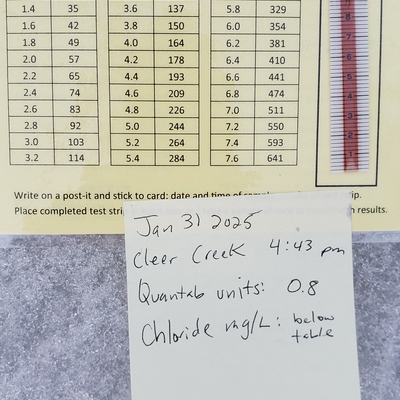 1.4 35 3.6 137 5.8 329
1.6 42 3.8 150 6.0 354
1.8 49 4.0 164 6.2 381
2.0 57 4.2 178 6.4 410
2.2 65 4.4 193 6.6 441
2.4 74 4.6 209 6.8 474
2.6 83 4.8 226 7.0 511
2.8 92 5.0 244 7.2 550
3.0 103 5.2 264 7.4 593
3.2 114 5.4 284 7.6 641
Write on a post-it and stick to card: date and time of
Place completed test results.
Jan 31 2025
Cleer Creek 4:43 pm
Quantab units: 0.8
Chloride mg/L: below
table